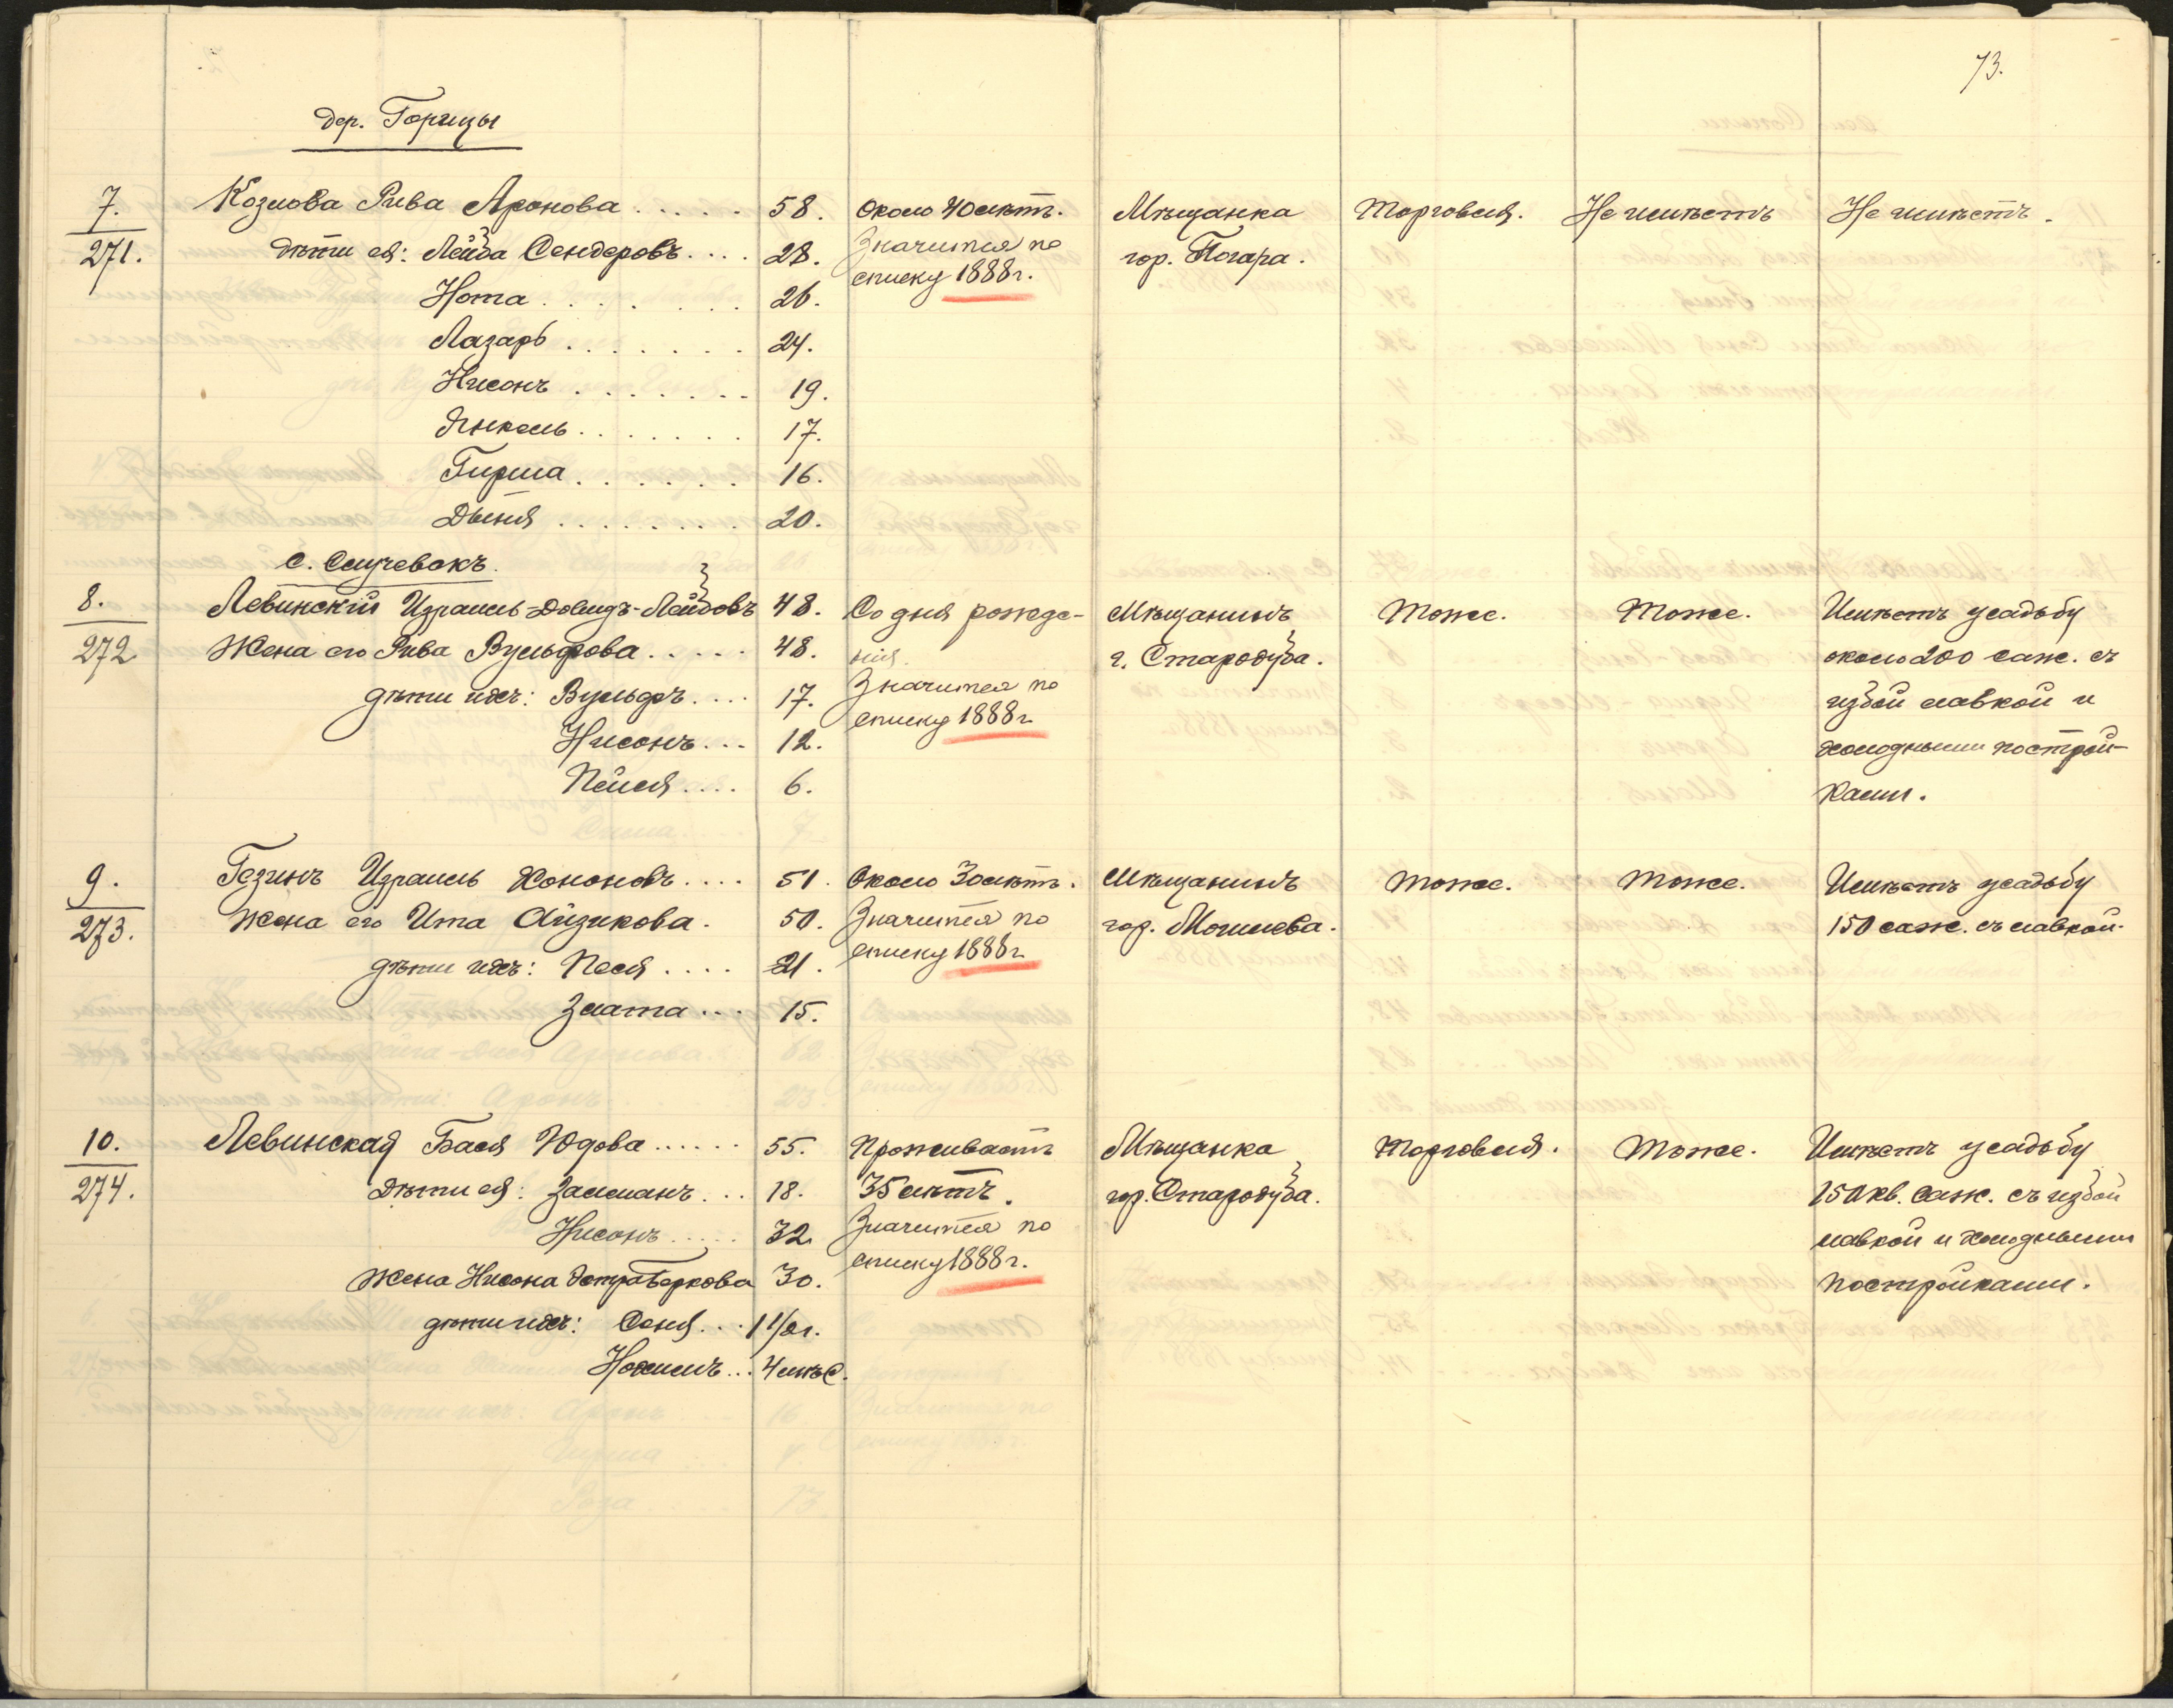 73.
дер. Горицы
7. Козлова Рива Аронова..... 58. Около 40 лѣтъ. Мѣщанка Торговля. Не имѣетъ Не имѣетъ.
271. Дѣти ея: Лейба Сендеровъ.... 28. Значится по гор. Погара.
списку 1888 г.
Нота....... 26.
Лазарь....... 24.
Нисонъ....... 19.
Янкель....... 17.
Гирша...... 16.
Дыня....... 20.
С. Случевокъ.
8. Левинскій Израиль-Довидъ-Лейбовъ 48. Со дня рожде- Мѣщанинъ Тоже. Тоже. Имѣетъ усадьбу
272 Жена его Рива Вульфова..... 48. нія. г. Стародуба. около 200 саж. съ
дѣти ихъ: Вульфъ.... 17. Значится по избой лавкой и
списку 1888 г.
Нисонъ... 12. холодными построй-
Пейся.... 6. ками.
9. Гезинъ Израиль Хононовъ.... 51. Около 30 лѣтъ. Мѣщанинъ Тоже. Тоже. Имѣетъ усадьбу
273. Жена его Ита Айзикова. 50. Значится по гор. Могилева. 150 саж. съ лавкой.
дѣти ихъ: Песя.... 21. списку 1888 г.
Злата... 15.
10. Левинская Бася Юдова...... 55. Проживаетъ Мѣщанка Торговля. Тоже. Имѣетъ усадьбу
274. Дѣти ея: Залманъ... 18. 35 лѣтъ. гор. Стародуба. 150 кв. саж. съ избой
Нисонъ..... 32. Значится по лавкой и холодными
списку 1888 г.
Жена Нисона Эстра Беркова 30. постройками.
дѣти ихъ: Соня... 1 1/2 г.
Нохимъ... 4 мѣс.